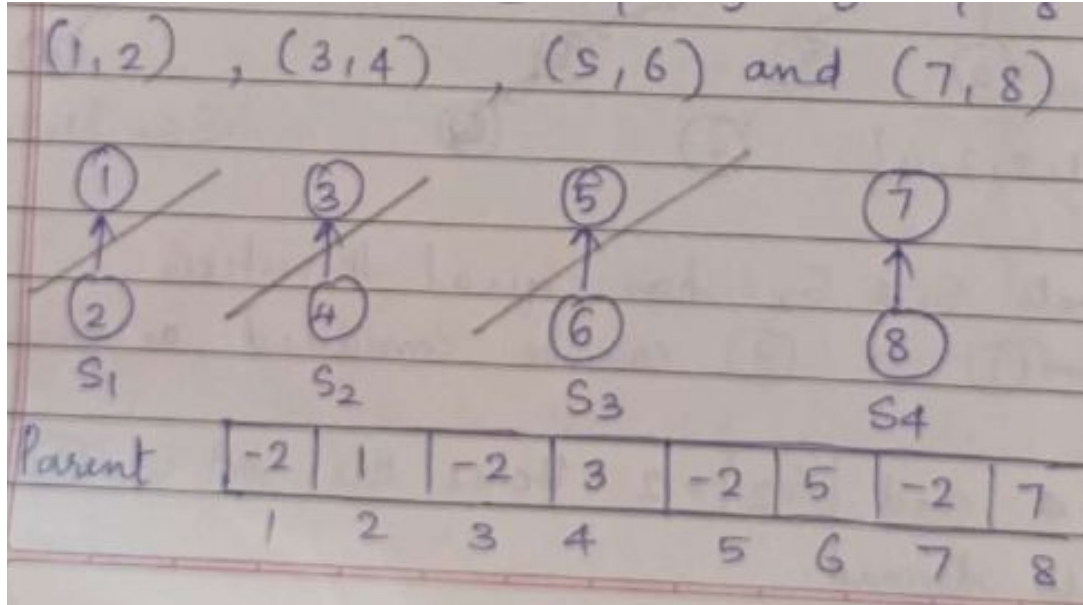 (1,2) , (3,4) , (5,6) and (7,8)
1 3 5 7
2 4 6 8
S1 S2 S3 S4
Parent -2 1 -2 3 -2 5 -2 7
1 2 3 4 5 6 7 8